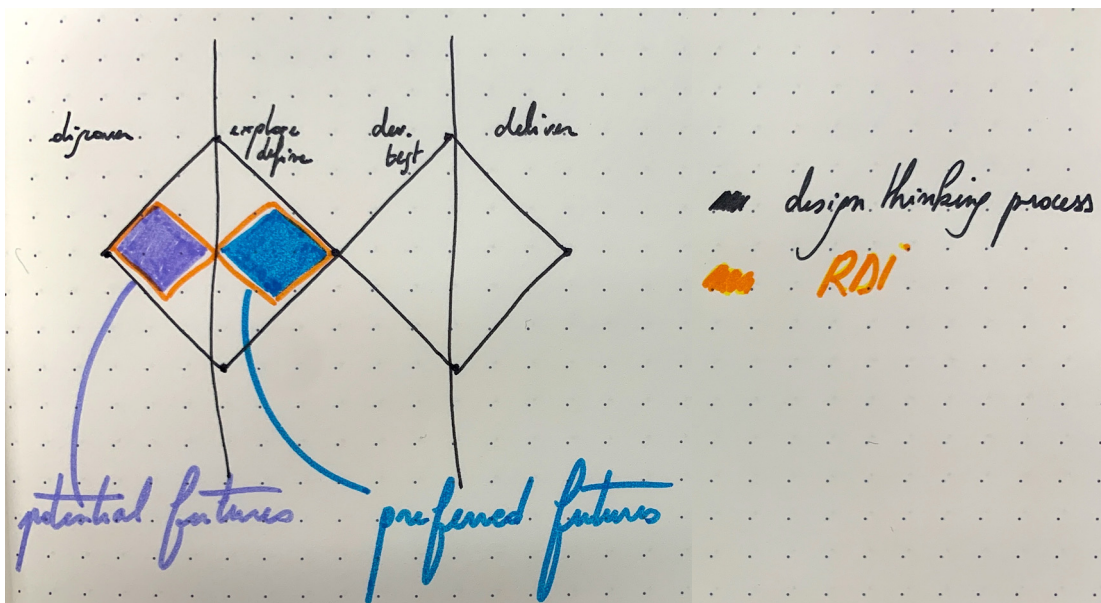 discover
explore
define
dev.
test
deliver
design thinking process
RDI
potential futures
preferred futures